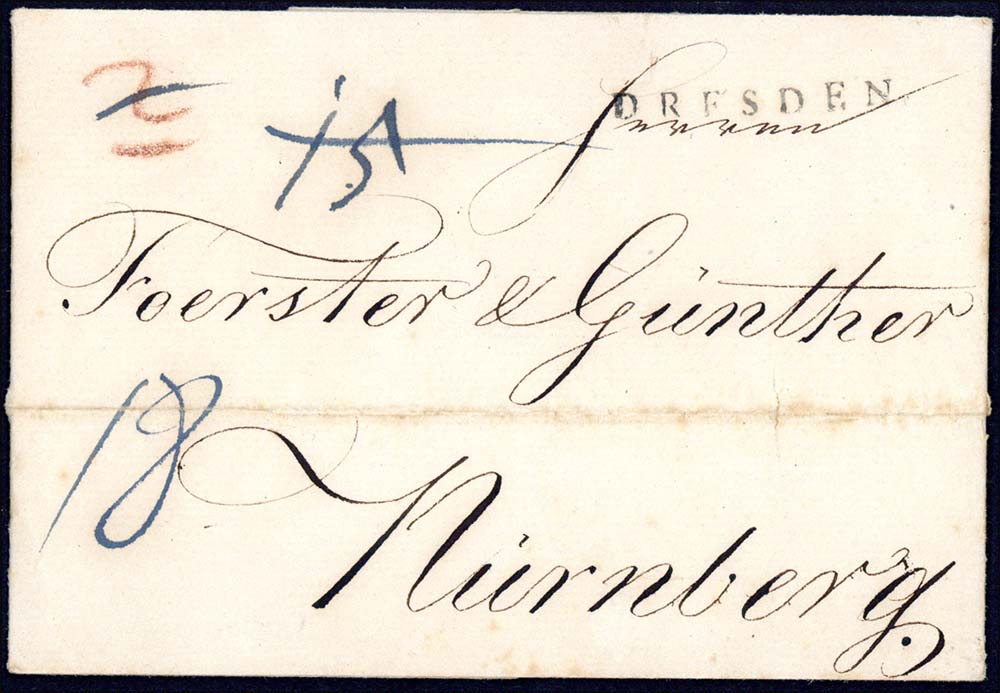 DRESDEN
Herren
Foerster & Günther
18
Nürnberg.